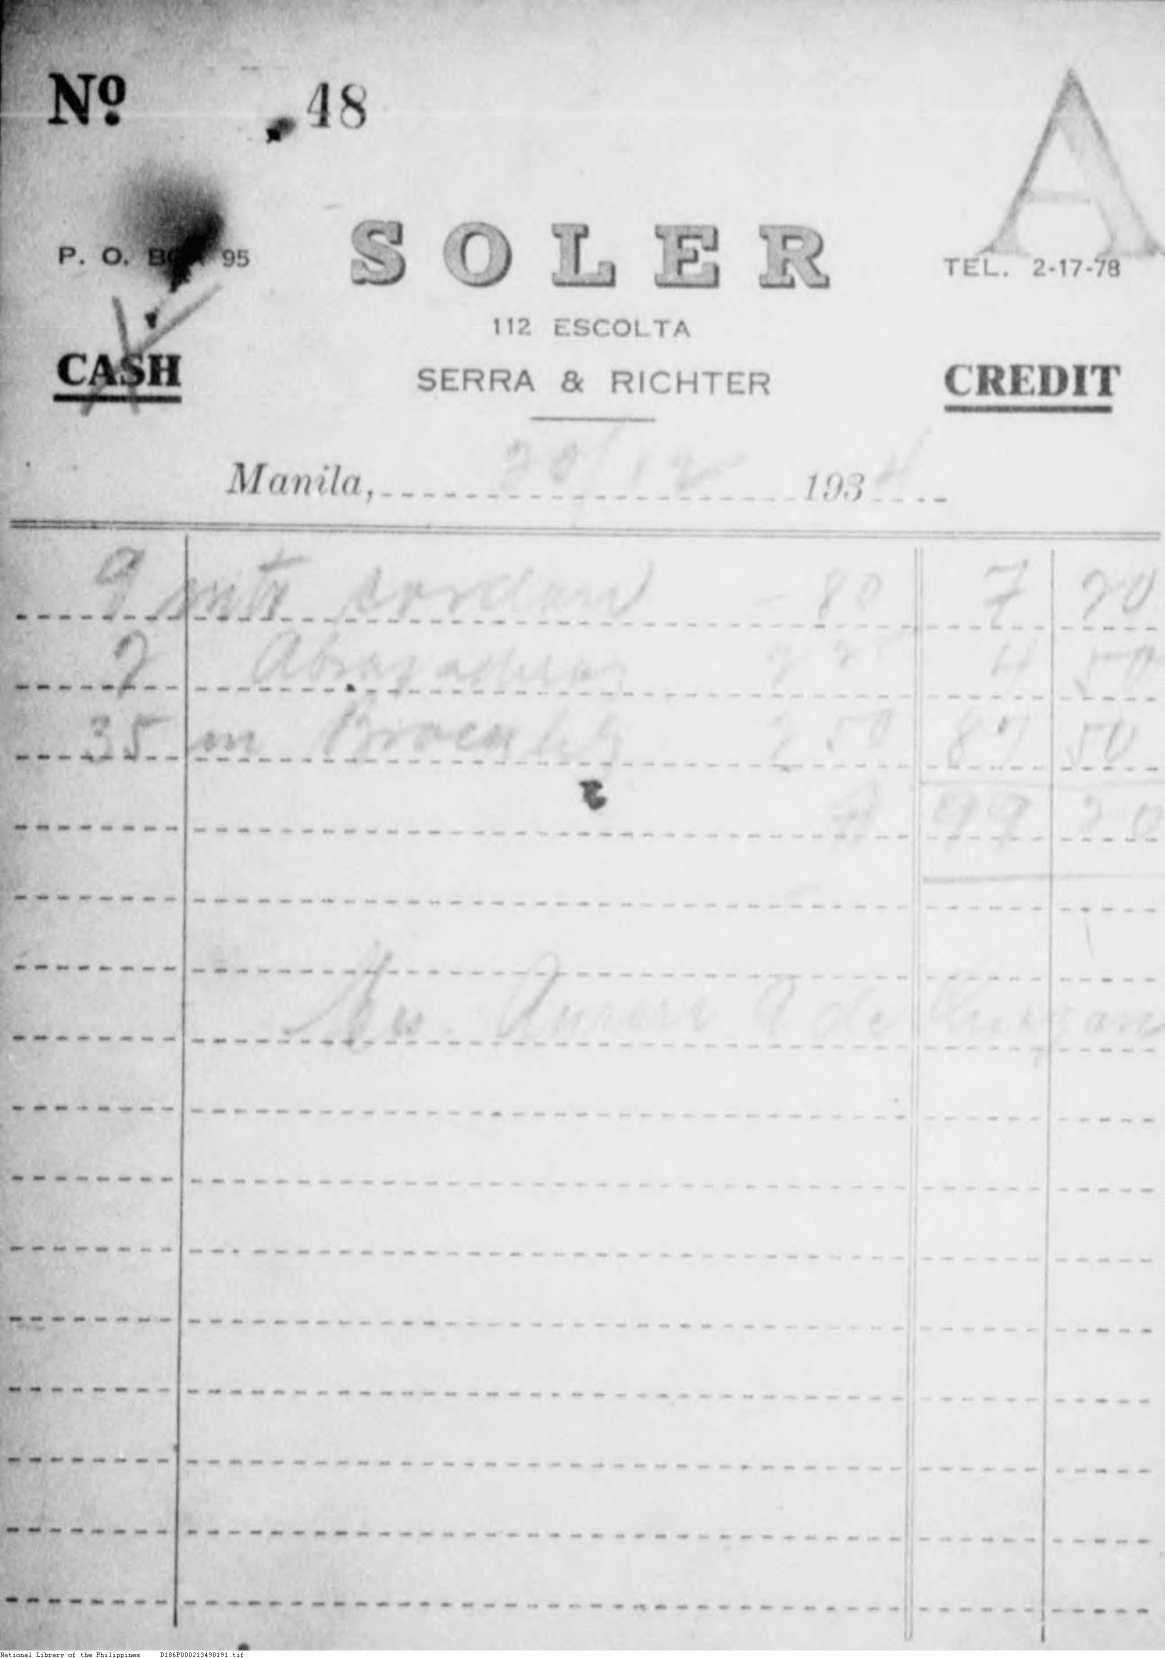 Nº 48
A
SOLER
P. O. 95
TEL. 2-17-78
112 ESCOLTA
CASH
SERRA & RICHTER
CREDIT
Manila, 20/12 1934
9 mts cordon - 80 7 20
2 Abrazaderas 2 25 4 50
35 m 2 50 87 50
₱ 99 20
Aurora A de
National Library of the Philippines D186P000213498191.tif